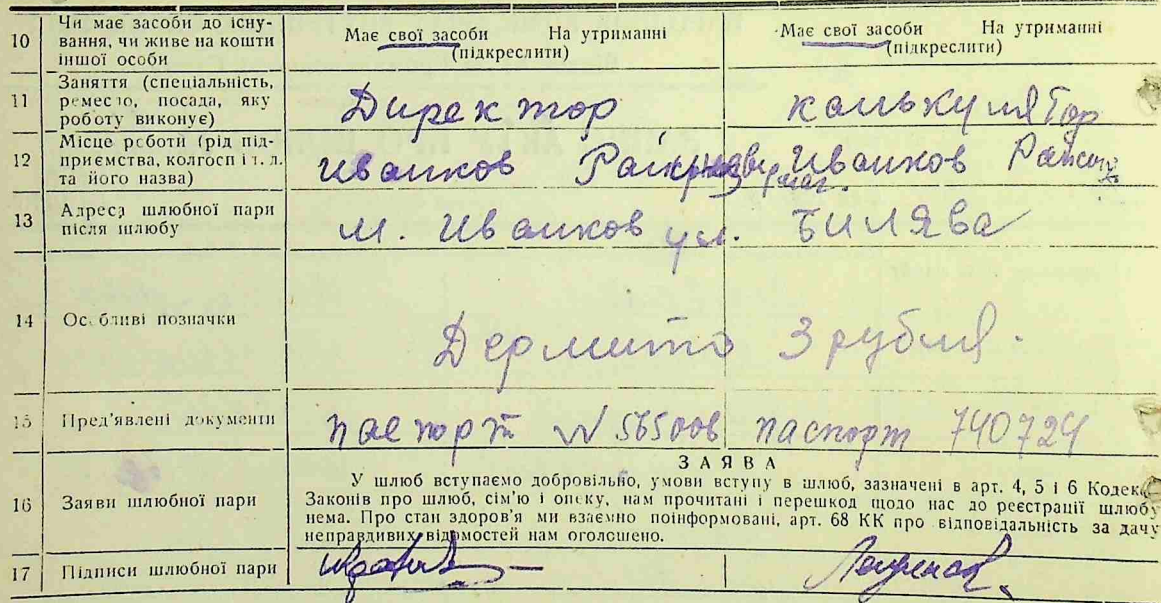 10 Чи має засоби до існу-
вання, чи живе на кошти
іншої особи
Має свої засоби На утриманні
(підкреслити)
Має свої засоби На утриманні
(підкреслити)
11 Заняття (спеціальність,
ремесло, посада, яку
роботу виконує)
Директор
калькулятор
12 Місце роботи (рід під-
приємства, колгосп і т. л.
та його назва)
Иванков
Иванков
13 Адреса шлюбної пари
після шлюбу
м. Иванков ул. Билява
14 Особливі позначки
3 рубля.
15 Пред'явлені документи
паспорт N 565006
паспорт 740724
16 Заяви шлюбної пари
ЗАЯВА
У шлюб вступаємо добровільно, умови вступу в шлюб, зазначені в арт. 4, 5 і 6 Кодекс
Законів про шлюб, сім'ю і опіку, нам прочитані і перешкод щодо нас до реєстрації шлюбу
нема. Про стан здоров'я ми взаємно поінформовані, арт. 68 КК про відповідальність за дачу
неправдивих відомостей нам оголошено.
17 Підписи шлюбної пари